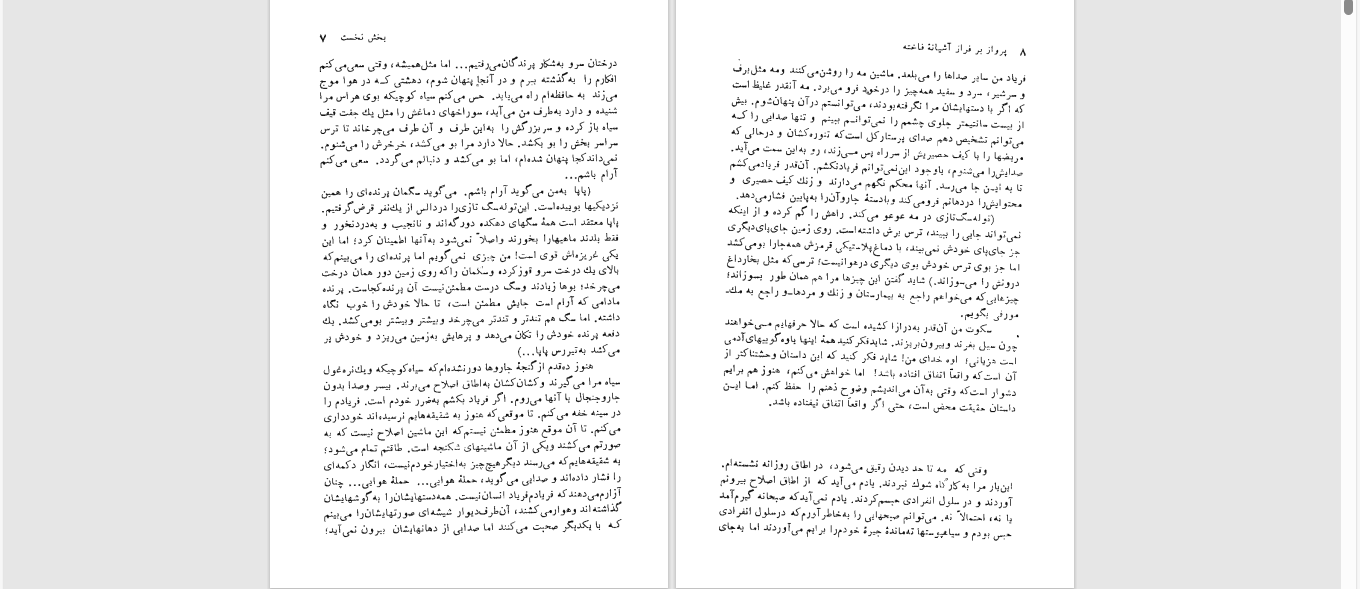 بخش نخست ۷
درختان سرو به‌شکار پرندگان‌می‌رفتیم... اما مثل‌همیشه، وقتی سعی‌می‌کنم
افکارم را به‌گذشته ببرم و در آنجا پنهان شوم، دهشتی کـه در هوا موج
می‌زند به حافظه‌ام راه می‌یابد. حس می‌کنم سیاه کوچیکه بوی هراس مرا
شنیده و دارد به‌طرف من می‌آید، سوراخهای دماغش را مثل یك جفت قیف
سیاه باز کرده و سر بزرگش را به‌این طرف و آن طرف می‌چرخاند تا ترس
سراسر بخش را بو بکشد. حالا دارد مرا بو می‌کشد، خرخرش را می‌شنوم.
نمی‌داند‌کجا پنهان شده‌ام، اما بو می‌کشد و دنبالم می‌گردد. سعی می‌کنم
آرام باشم...
(پاپا به‌من می‌گوید آرام باشم. می‌گوید سگمان پرنده‌ای را همین
نزدیکیها بوییده‌است. این‌توله‌سگ تازی‌را دردالس از یك‌نفر قرض‌گرفتیم.
پاپا معتقد است همهٔ سگهای دهکده دورگه‌اند و نانجیب و به‌دردنخور و
فقط بلدند ماهیهارا بخورند واصلاً نمی‌شود به‌آنها اطمینان کرد؛ اما این
یکی غریزه‌اش قوی است! من چیزی نمی‌گویم اما پرنده‌ای را می‌بینم‌که
بالای یك درخت سرو قوزکرده وسگمان راکه روی زمین دور همان درخت
می‌چرخد؛ بوها زیادند وسگ درست مطمئن‌نیست آن پرنده‌کجاست. پرنده
مادامی که آرام است جایش مطمئن است، تا حالا خودش را خوب نگاه
داشته. اما سگ هم تندتر و تندتر می‌چرخد وبیشتر وبیشتر بومی‌کشد. یك
دفعه پرنده خودش را تکان می‌دهد و پرهایش به‌زمین می‌ریزد و خودش پر
می‌کشد به‌تیررس پاپا...)
هنوز ده‌قدم ازگنجهٔ جاروها دورنشده‌ام‌که سیاه‌کوچیکه ویك‌نره‌غول
سیاه مرا می‌گیرند وکشان‌کشان به‌اطاق اصلاح می‌برند. بیسر وصدا بدون
جاروجنجال با آنها می‌روم. اگر فریاد بکشم به‌ضرر خودم است. فریادم را
در سینه خفه می‌کنم. تا موقعی‌که هنوز به شقیقه‌هایم نرسیده‌اند خودداری
می‌کنم. تا آن موقع هنوز مطمئن نیستم‌که این ماشین اصلاح نیست که به
صورتم می‌کشند ویکی از آن ماشینهای شکنجه است. طاقتم تمام می‌شود؛
به شقیقه‌هایم‌که می‌رسند دیگر هیچ‌چیز به‌اختیارخودم‌نیست، انگار دکمه‌ای
را فشار داده‌اند و صدایی می‌گوید، حملهٔ هوایی... حملهٔ هوایی... چنان
آزارم‌می‌دهندکه فریادم‌فریاد انسان‌نیست. همه‌دستهایشان‌را به‌گوشهایشان
گذاشته‌اند وهوارمی‌کشند، آن‌طرف‌دیوار شیشه‌ای صورتهایشان‌را می‌بینم
کـه با یکدیگر صحبت می‌کنند اما صدایی از دهانهایشان بیرون نمی‌آید؛
۸ پرواز بر فراز آشیانهٔ فاخته
فریاد من سایر صداها را می‌بلعد. ماشین مه را روشن‌می‌کنند ومه مثل‌برف
و سرشیر، سرد و سفید همه‌چیز را درخود فرو می‌برد. مه آنقدر غلیظ است
که اگر با دستهایشان مرا نگرفته‌بودند، می‌توانستم درآن پنهان‌شوم. بیش
از بیست سانتیمتر جلوی چشمم را نمی‌توانـم ببینم و تنها صدایی را کـه
می‌توانم تشخیص دهم صدای پرستارکل است‌که تنوره‌کشان و درحالی که
مریضها را با کیف حصیریش از سرراه پس مـی‌زند، رو به‌این سمت می‌آید.
صدایش‌را می‌شنوم، باوجود این‌نمی‌توانم فریادنکشم. آن‌قدر فریادمی‌کشم
تا به ایـن جا می‌رسد. آنها محکم نگهم می‌دارند و زنك کیف حصیری و
محتوایش‌را دردهانم فرومی‌کند وبادستهٔ جاروآن‌را به‌پایین فشارمی‌دهد.
(توله‌سگ‌تازی در مه عوعو می‌کند. راهش را گم کرده و از اینکه
نمی‌تواند جایی را ببیند، ترس برش داشته‌است. روی زمین جای‌پای‌دیگری
جز جای‌پای خودش نمی‌بیند، با دماغ‌پلاستیکی قرمزش همه‌جارا بومی‌کشد
اما جز بوی ترس خودش بوی دیگری درهوانیست؛ ترسی‌که مثل بخارداغ
درونش را می‌سوزاند.) شاید گفتن این چیزها مرا هم همان طور بسوزاند؛
چیزهایی‌که می‌خواهم راجع به بیمارستان و زنك و مردهاـو راجع به مك‌ـ
مورفی بگویم.
سکوت من آن‌قدر به‌درازا کشیده است که حالا حرفهایم مـی‌خواهند
چون سیل بغرند وبیرون‌بریزند. شایدفکرکنید همهٔ اینها یاوه‌گوییهای‌آدمی
است هزیانی؛ اوه خدای من! شاید فکر کنید که این داستان وحشتناکتر از
آن است‌که واقعاً اتفاق افتاده باشد! اما خواهش می‌کنم، هنوز هم برایم
دشوار است‌که وقتی به‌آن می‌اندیشم وضوح ذهنم را حفظ کنم. اما ایـن
داستان حقیقت محض است، حتی اگر واقعاً اتفاق نیفتاده باشد.
وقتی که مه تا حد دیدن رقیق می‌شود، در اطاق روزانه نشسته‌ام.
این‌بار مرا به‌کارگاه شوك نبردند. یادم می‌آید که از اطاق اصلاح بیرونم
آوردند و در سلول انفرادی حبسم‌کردند. یادم نمی‌آیدکه صبحانه گیرم‌آمد
یا نه، احتمالاً نه. می‌توانم صبحهایی را به‌خاطرآورم‌که درسلول انفرادی
حبس بودم و سیاهپوستها ته‌ماندهٔ جیرهٔ خودم‌را برایم می‌آوردند اما به‌جای